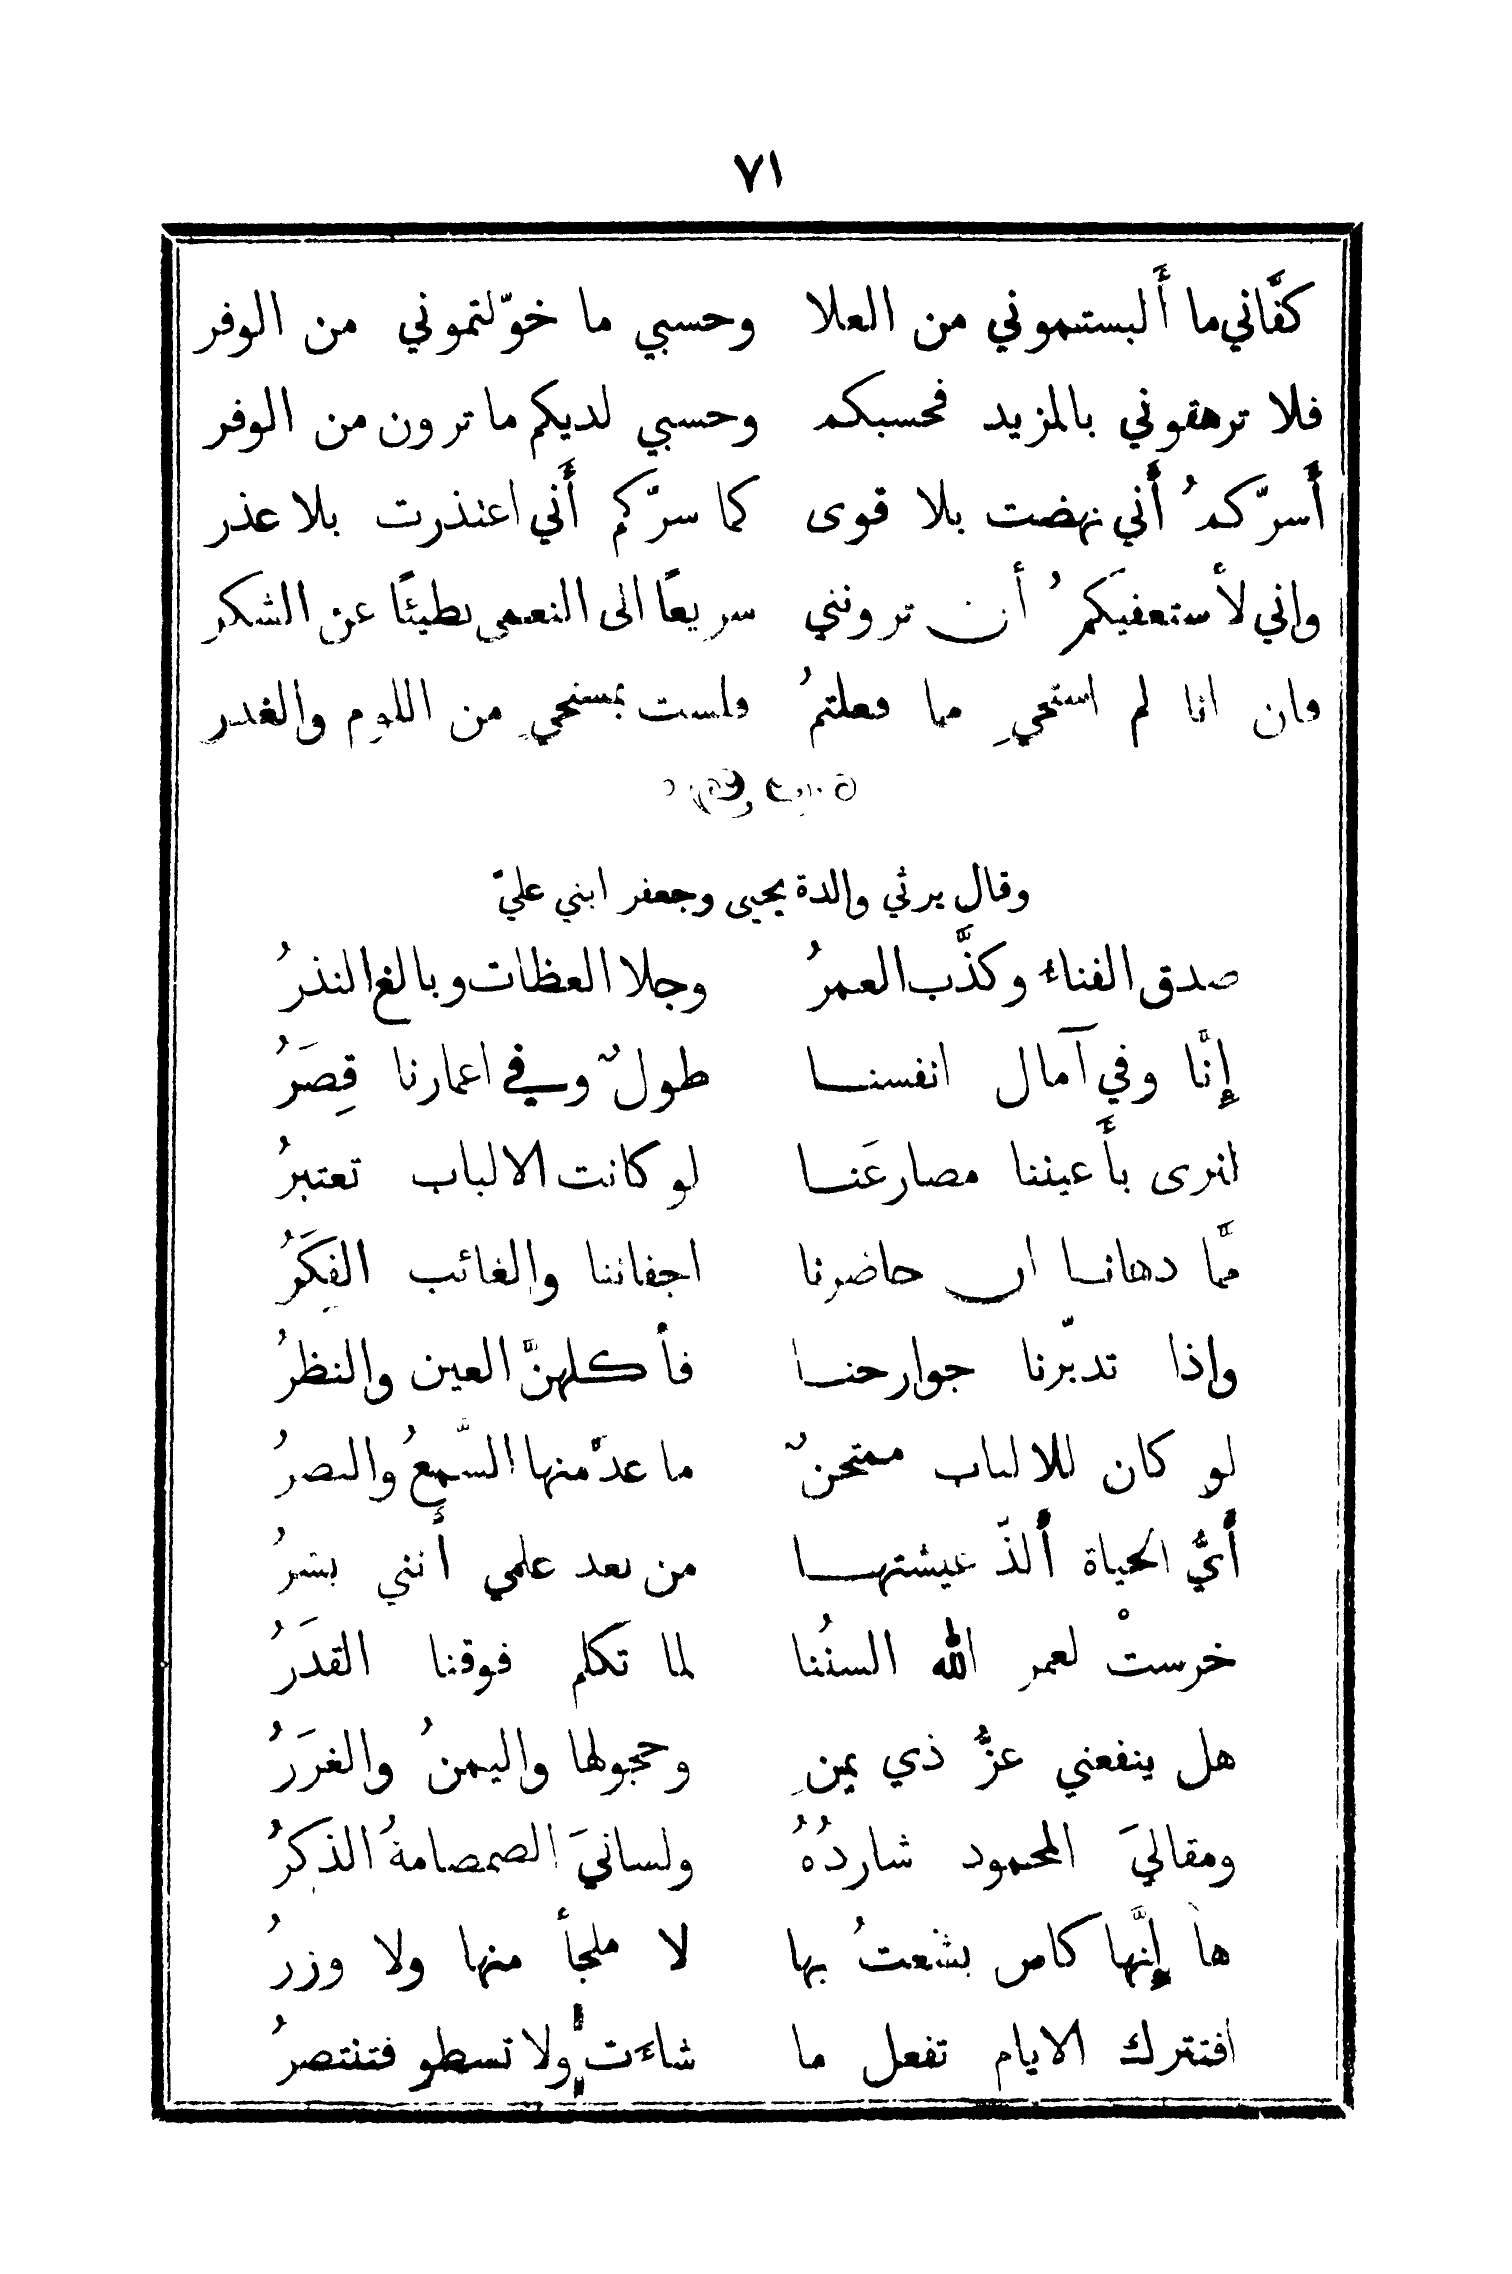 ٧١
كفَّاني ما أَلبستموني من العلا وحسبي ما خوّلتموني من الوفر
فلا ترهقوني بالمزيد فحسبكم وحسبي لديكم ما ترون من الوفر
أَسرّكمُ أَني نهضت بلا قوى كما سرّكم أَني اعتذرت بلا عذر
وإني لأستعفيكمُ أن ترونني سريعًا الى النعمى بطيئًا عن الشكر
فان انا لم استحيِ مما فعلتمُ فلست بمستحيِ من اللوم والغدر
وقال يرثي والدة يحيى وجعفر ابني عليّ
صدق الفناء وكذَّب العمرُ وجلا العظات وبالغ النذرُ
إِنَّا وفي آمال انفسنا طولٌ وفي اعمارنا قِصَرُ
لنرى بأَعيننا مصارعَنا لو كانت الالباب تعتبرُ
ممَّا دهانا ان حاضرنا اجفاننا والغائب الفِكَرُ
وإذا تدبّرنا جوارحنا فأكلهنَّ العين والنظرُ
لو كان للالباب ممتحنٌ ما عدّ منها السَّمعُ والبصرُ
أَيُّ الحياة أَلذّ عيشتها من بعد علمي أَنني بشرُ
خرستْ لعمر الله السنُنا لما تَكلم فوقنا القدَرُ
هل ينفعني عزُّ ذي يمنِ وحجولها واليمنُ والغرَرُ
ومقاليَ المحمود شاردُهُ ولسانيَ الصمصامةُ الذكرُ
ها إِنَّها كاس بشعتُ بها لا ملجأ منها ولا وزرُ
افتترك الايام تفعل ما شاءت ولا تسطو فتنتصرُ